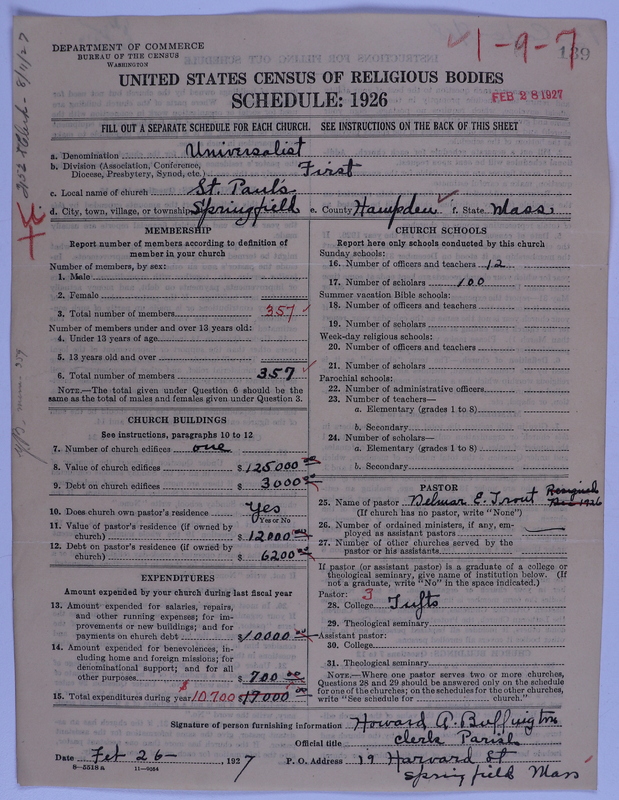 DEPARTMENT OF COMMERCE
BUREAU OF THE CENSUS
WASHINGTON
1-9-7
189
UNITED STATES CENSUS OF RELIGIOUS BODIES
SCHEDULE: 1926
FEB 28 1927
FILL OUT A SEPARATE SCHEDULE FOR EACH CHURCH. SEE INSTRUCTIONS ON THE BACK OF THIS SHEET
a. Denomination Universalist
b. Division (Association, Conference, Diocese, Presbytery, Synod, etc.) First
c. Local name of church St. Paul's
d. City, town, village, or township Springfield e. County Hampden f. State Mass
MEMBERSHIP
Report number of members according to definition of
member in your church
Number of members, by sex:
1. Male
2. Female
3. Total number of members 357
Number of members under and over 13 years old:
4. Under 13 years of age
5. 13 years old and over
6. Total number of members 357
NOTE.—The total given under Question 6 should be
same as the total of males and females given under Question 3.
CHURCH BUILDINGS
See instructions, paragraphs 10 to 12
7. Number of church edifices one
8. Value of church edifices $125000 00
9. Debt on church edifices $3000 00
10. Does church own pastor's residence Yes
Yes or No
11. Value of pastor's residence (if owned by
church) $12000
12. Debt on pastor's residence (if owned by
church) $6200
EXPENDITURES
Amount expended by church during last fiscal year
13. Amount expended for salaries, repairs,
and other running expenses; for im-
provements or new buildings; and for
payments on church debt $10000 00
14. Amount expended for benevolences, in-
cluding home and foreign missions; for
denominational support; and for all
other purposes $700 00
15. Total expenditures during year $10,700 $17000 00
CHURCH SCHOOLS
Report here only schools conducted by this church
Sunday schools:
16. Number of officers and teachers 12
17. Number of scholars 100
Summer vacation Bible schools:
18. Number of officers and teachers
19. Number of scholars
Week-day religious schools:
20. Number of officers and teachers
21. Number of scholars
Parochial schools:
22. Number of administrative officers
23. Number of teachers—
a. Elementary (grades 1 to 8)
b. Secondary
24. Number of scholars—
a. Elementary (grades 1 to 8)
b. Secondary
PASTOR
25. Name of pastor Delmar E. Trout Resigned Dec 1926
(If church has no pastor, write "None")
26. Number of ordained ministers, if any, em-
ployed as assistant pastors
27. Number of other churches served by the
pastor or his assistants
If pastor (or assistant pastor) is a graduate of a college or
theological seminary, give name of institution below. (If
not a graduate, write "No" in the space indicated.)
Pastor: 3
28. College Tufts
29. Theological seminary
Assistant pastor:
30. College
31. Theological seminary
NOTE.—Where one pastor serves two or more churches,
Questions 28 and 29 should be answered only on the schedule
for one of the churches; on the schedules for the other churches,
write "See schedule for church."
Signature of person furnishing information Howard A. Buffington
Official title Clerk Parish
Date Feb 26 — , 1927 P. O. Address 19 Harvard St
8-5518a 11-9064
Springfield Mass